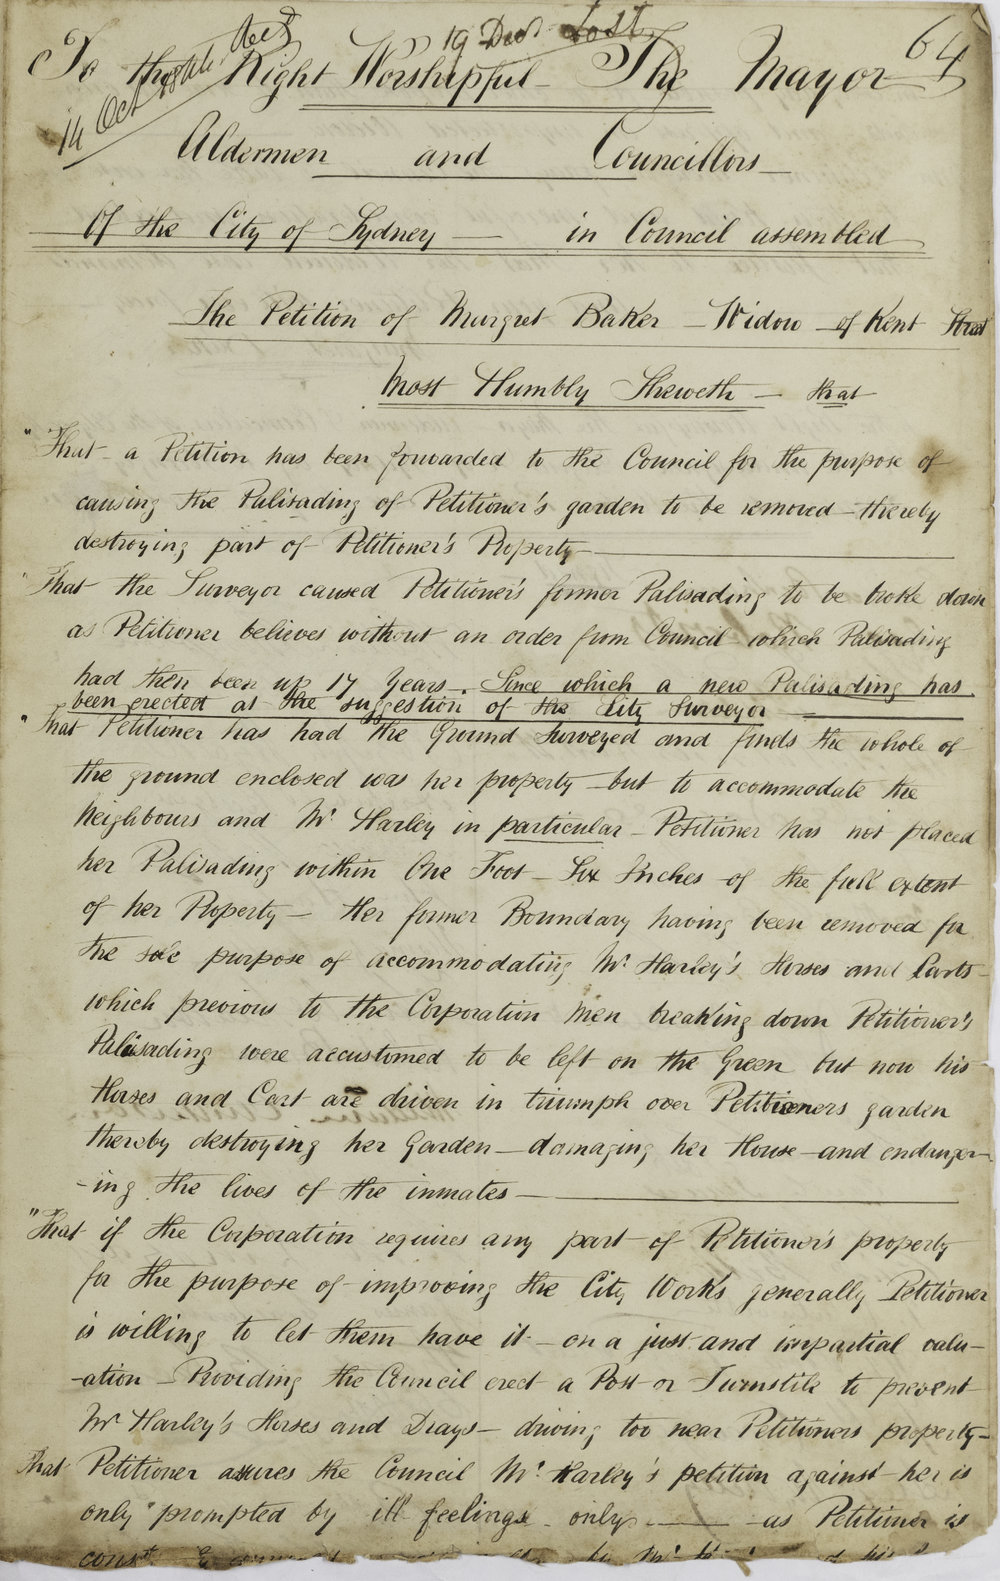 19 Decr Lost
64
14 Oct
To the Right Worshipful The Mayor
Aldermen and Councillors
Of the City of Sydney — in Council assembled
The Petition of Margret Baker — Widow — of Kent Street
Most Humbly Sheweth — that
"That a Petition has been forwarded to the Council for the purpose of
causing the Palisading of Petitioner's garden to be removed thereby
destroying part of Petitioner's Property —
"That the Surveyor caused Petitioner's former Palisading to be broke down
as Petitioner believes without an order from Council which Palisading
had then been up 17 Years. Since which a new Palisading has
been erected at the suggestion of the City Surveyor —
"That Petitioner has had the Ground Surveyed and finds the whole of
the ground enclosed was her property — but to accommodate the
Neighbours and Mr Harley in particular — Petitioner has not placed
her Palisading within One Foot — Six Inches of the full extent
of her Property — Her former Boundary having been removed for
the sole purpose of accommodating Mr Harley's Horses and Carts —
which previous to the Corporation Men breaking down Petitioner's
Palisading were accustomed to be left on the Green but now his
Horses and Cart are driven in triumph over Petitioners garden
thereby destroying her Garden — damaging her House and endanger-
-ing the lives of the inmates —
"That if the Corporation requires any part of Petitioner's property
for the purpose of improving the City Works generally Petitioner
is willing to let them have it — on a just and impartial valu-
-ation — Providing the Council erect a Post or Turnstile to prevent
Mr Harley's Horses and Drays — driving too near Petitioners property —
That Petitioner assures the Council Mr Harley's petition against her is
only "prompted by ill feelings only — as Petitioner is